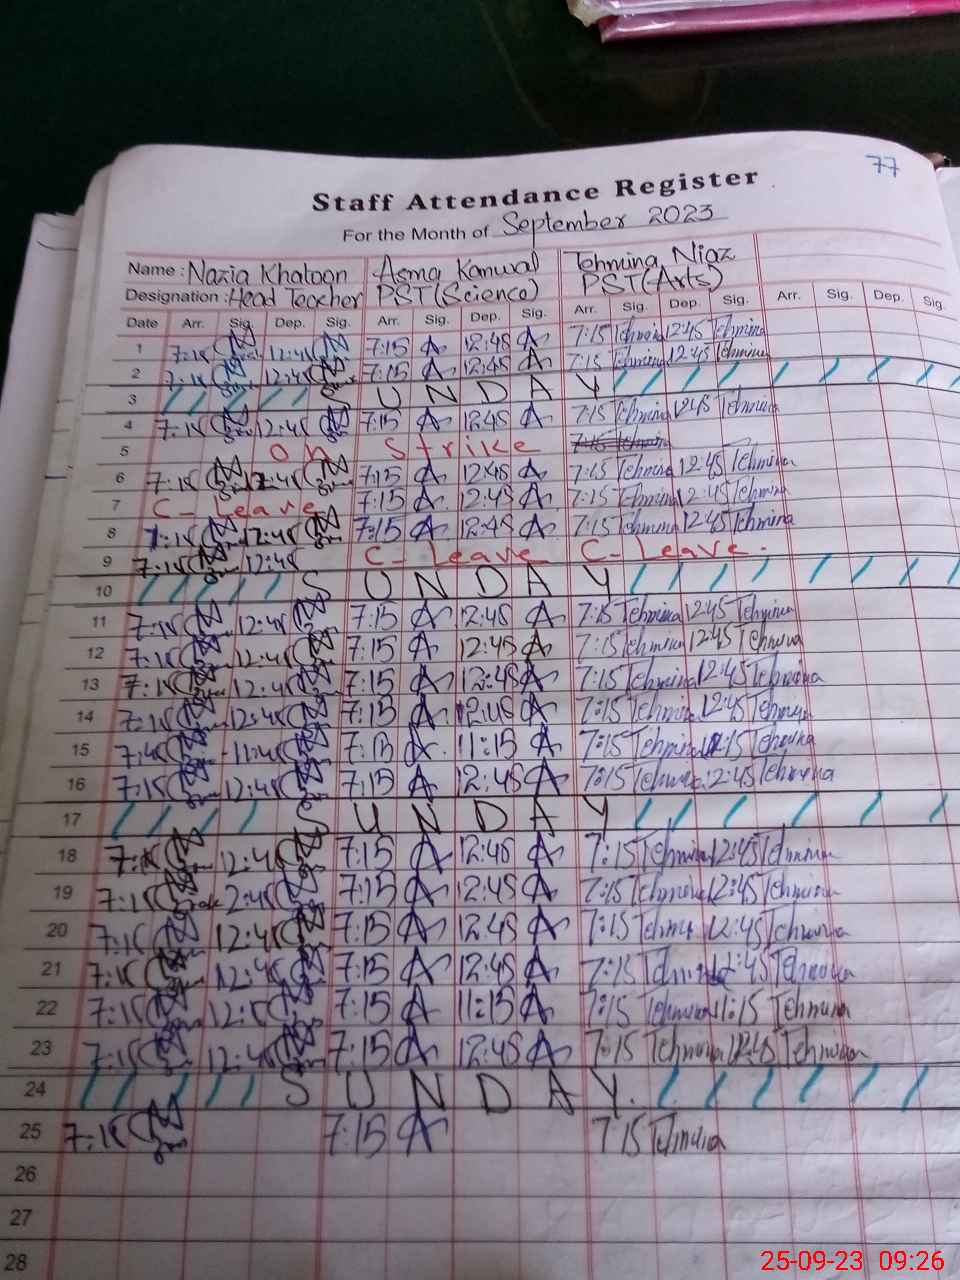 77
Staff Attendance Register
For the Month of September 2023
Name : Nazia Khatoon Asma Kanwal Tehmina Niaz
Designation : Head Teacher PST(Science) PST(Arts)
Date Arr. Sig. Dep. Sig. Arr. Sig. Dep. Sig. Arr. Sig. Dep. Sig. Arr. Sig. Dep. Sig.
1 7:15 12:45 7:15 A 12:45 A 7:15 Tehmina 12:45 Tehmina
2 7:15 12:45 7:15 A 12:45 A 7:15 Tehmina 12:45 Tehmina
3 S U N D A Y
4 7:15 12:45 7:15 A 12:45 A 7:15 Tehmina 12:45 Tehmina
5 On Strike
6 7:15 12:45 7:15 A 12:45 A 7:15 Tehmina 12:45 Tehmina
7 C-Leave 7:15 A 12:45 A 7:15 Tehmina 12:45 Tehmina
8 7:15 12:45 7:15 A 12:45 A 7:15 Tehmina 12:45 Tehmina
9 7:15 12:45 C-Leave C-Leave.
10 S U N D A Y
11 7:15 12:45 7:15 A 12:45 A 7:15 Tehmina 12:45 Tehmina
12 7:15 12:45 7:15 A 12:45 A 7:15 Tehmina 12:45 Tehmina
13 7:15 12:45 7:15 A 12:45 A 7:15 Tehmina 12:45 Tehmina
14 7:15 12:45 7:15 A 12:45 A 7:15 Tehmina 12:45 Tehmina
15 7:15 A 11:15 A 7:15 Tehmina Tehmina
16 7:15 12:45 7:15 A 12:45 A 7:15 Tehmina 12:45 Tehmina
17 S U N D A Y
18 7:15 12:45 7:15 A 12:45 A 7:15 Tehmina 12:45 Tehmina
19 7:15 2:45 7:15 A 12:45 A 7:15 Tehmina 12:45 Tehmina
20 7:15 12:45 7:15 A 12:45 A 7:15 Tehmina 12:45 Tehmina
21 7:15 12:45 7:15 A 12:45 A 7:15 Tehmina 12:45 Tehmina
22 7:15 7:15 A 11:15 A 7:15 Tehmina 11:15 Tehmina
23 7:15 12:45 7:15 A 12:45 A 7:15 Tehmina 12:45 Tehmina
24 S U N D A Y.
25 7:15 7:15 A 7:15 Tehmina
26
27
28
25-09-23 09:26